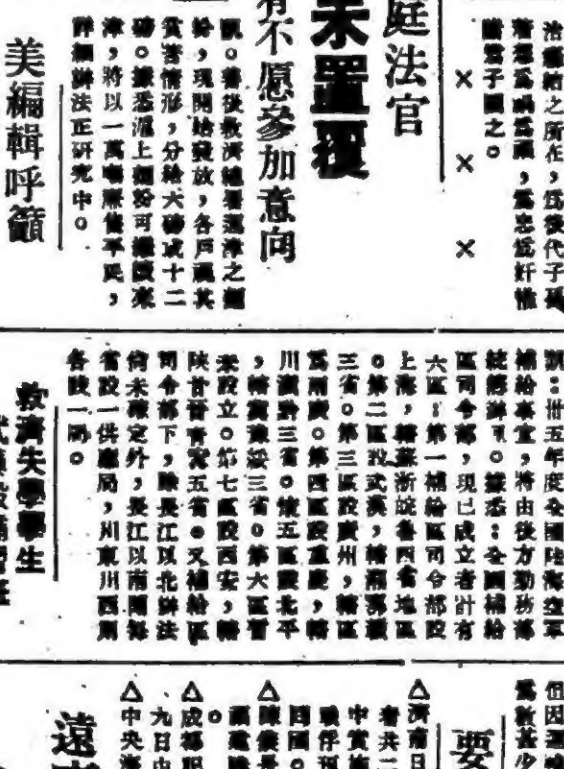 治癥結之所在，爲後代子孫
着想爲禍爲福，爲忠爲奸惟
諸君子圖之。
×　×　×
庭法官
未置覆
有不愿參加意向
訊。善後救濟總署運津之麵
粉，現開始發放，各戶視其
貧苦情形，分給六磅或十二
磅。據悉滬上麵粉可繼續來
津，將以一萬噸濟貧平民，
詳細辦法正研究中。
美編輯呼籲
訊：卅五年度全國陸海空軍
補給事宜，將由後方勤務部
統籌辦理。據悉：全國補給
區司令部，現已成立者計有
六區：第一補給區司令部設
上海，轄蘇浙皖魯四省地區
。第二區設武漢，轄湘鄂贛
三省。第三區設廣州，轄區
爲兩廣。第四區設重慶，轄
川滇黔三省。第五區設北平
，轄冀豫綏三省。第六區暫
未設立。第七區設西安，轄
陝甘晉青寧五省。又補給區
司令部下，除長江以北辦法
尚未確定外，長江以南則每
省設一供應局，川東川西則
各設一局。
救濟失學學生
但因運
爲數甚少
要
△濟南日
者共二
中實施
△陳儀
△成都
九日
△中央海
遠